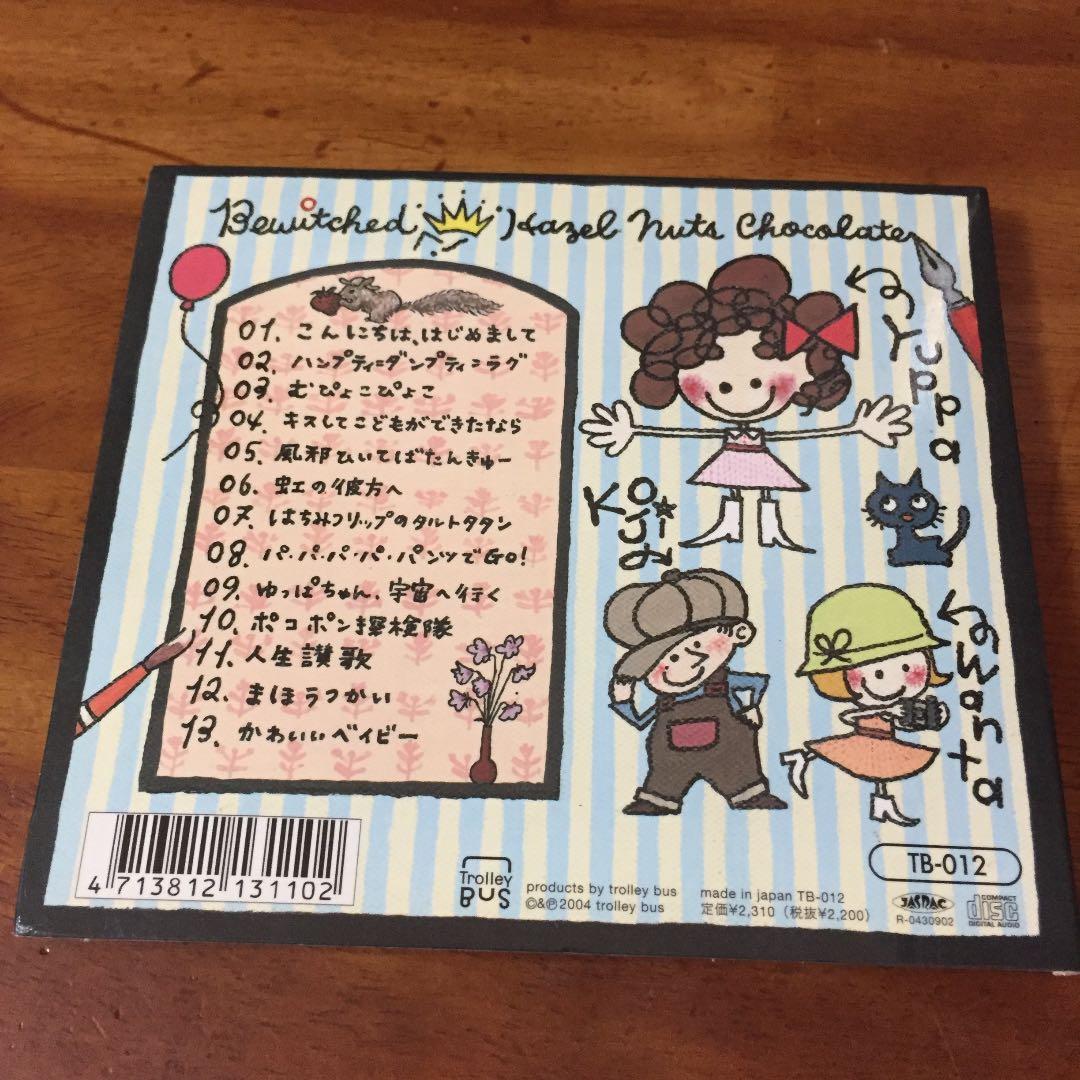 Bewitched Hazel Nuts Chocolate
01. こんにちは、はじめまして
02. ハンプティ=ダンプティ=ラグ
03. むぴょこぴょこ
04. キスしてこどもができたなら
05.風邪ひいてばたんきゅー
06. 虹の彼方へ
07. はちみつリップのタルトタタン
08. パ・パ・パ・パ・パンツでGO!
09. ゆっぱちゃん、宇宙へ行く
10. ポコポン探検隊
11. 人生讃歌
12. まほうつかい
13. かわいいベイビー
Yuppa
Koji
wanta
4 713812 131102
Trolley BUS
products by trolley bus
©&℗2004 trolley bus
made in japan TB-012
定価¥2,310（税抜¥2,200）
TB-012
JASRAC
R-0430902
COMPACT
disc
DIGITAL AUDIO